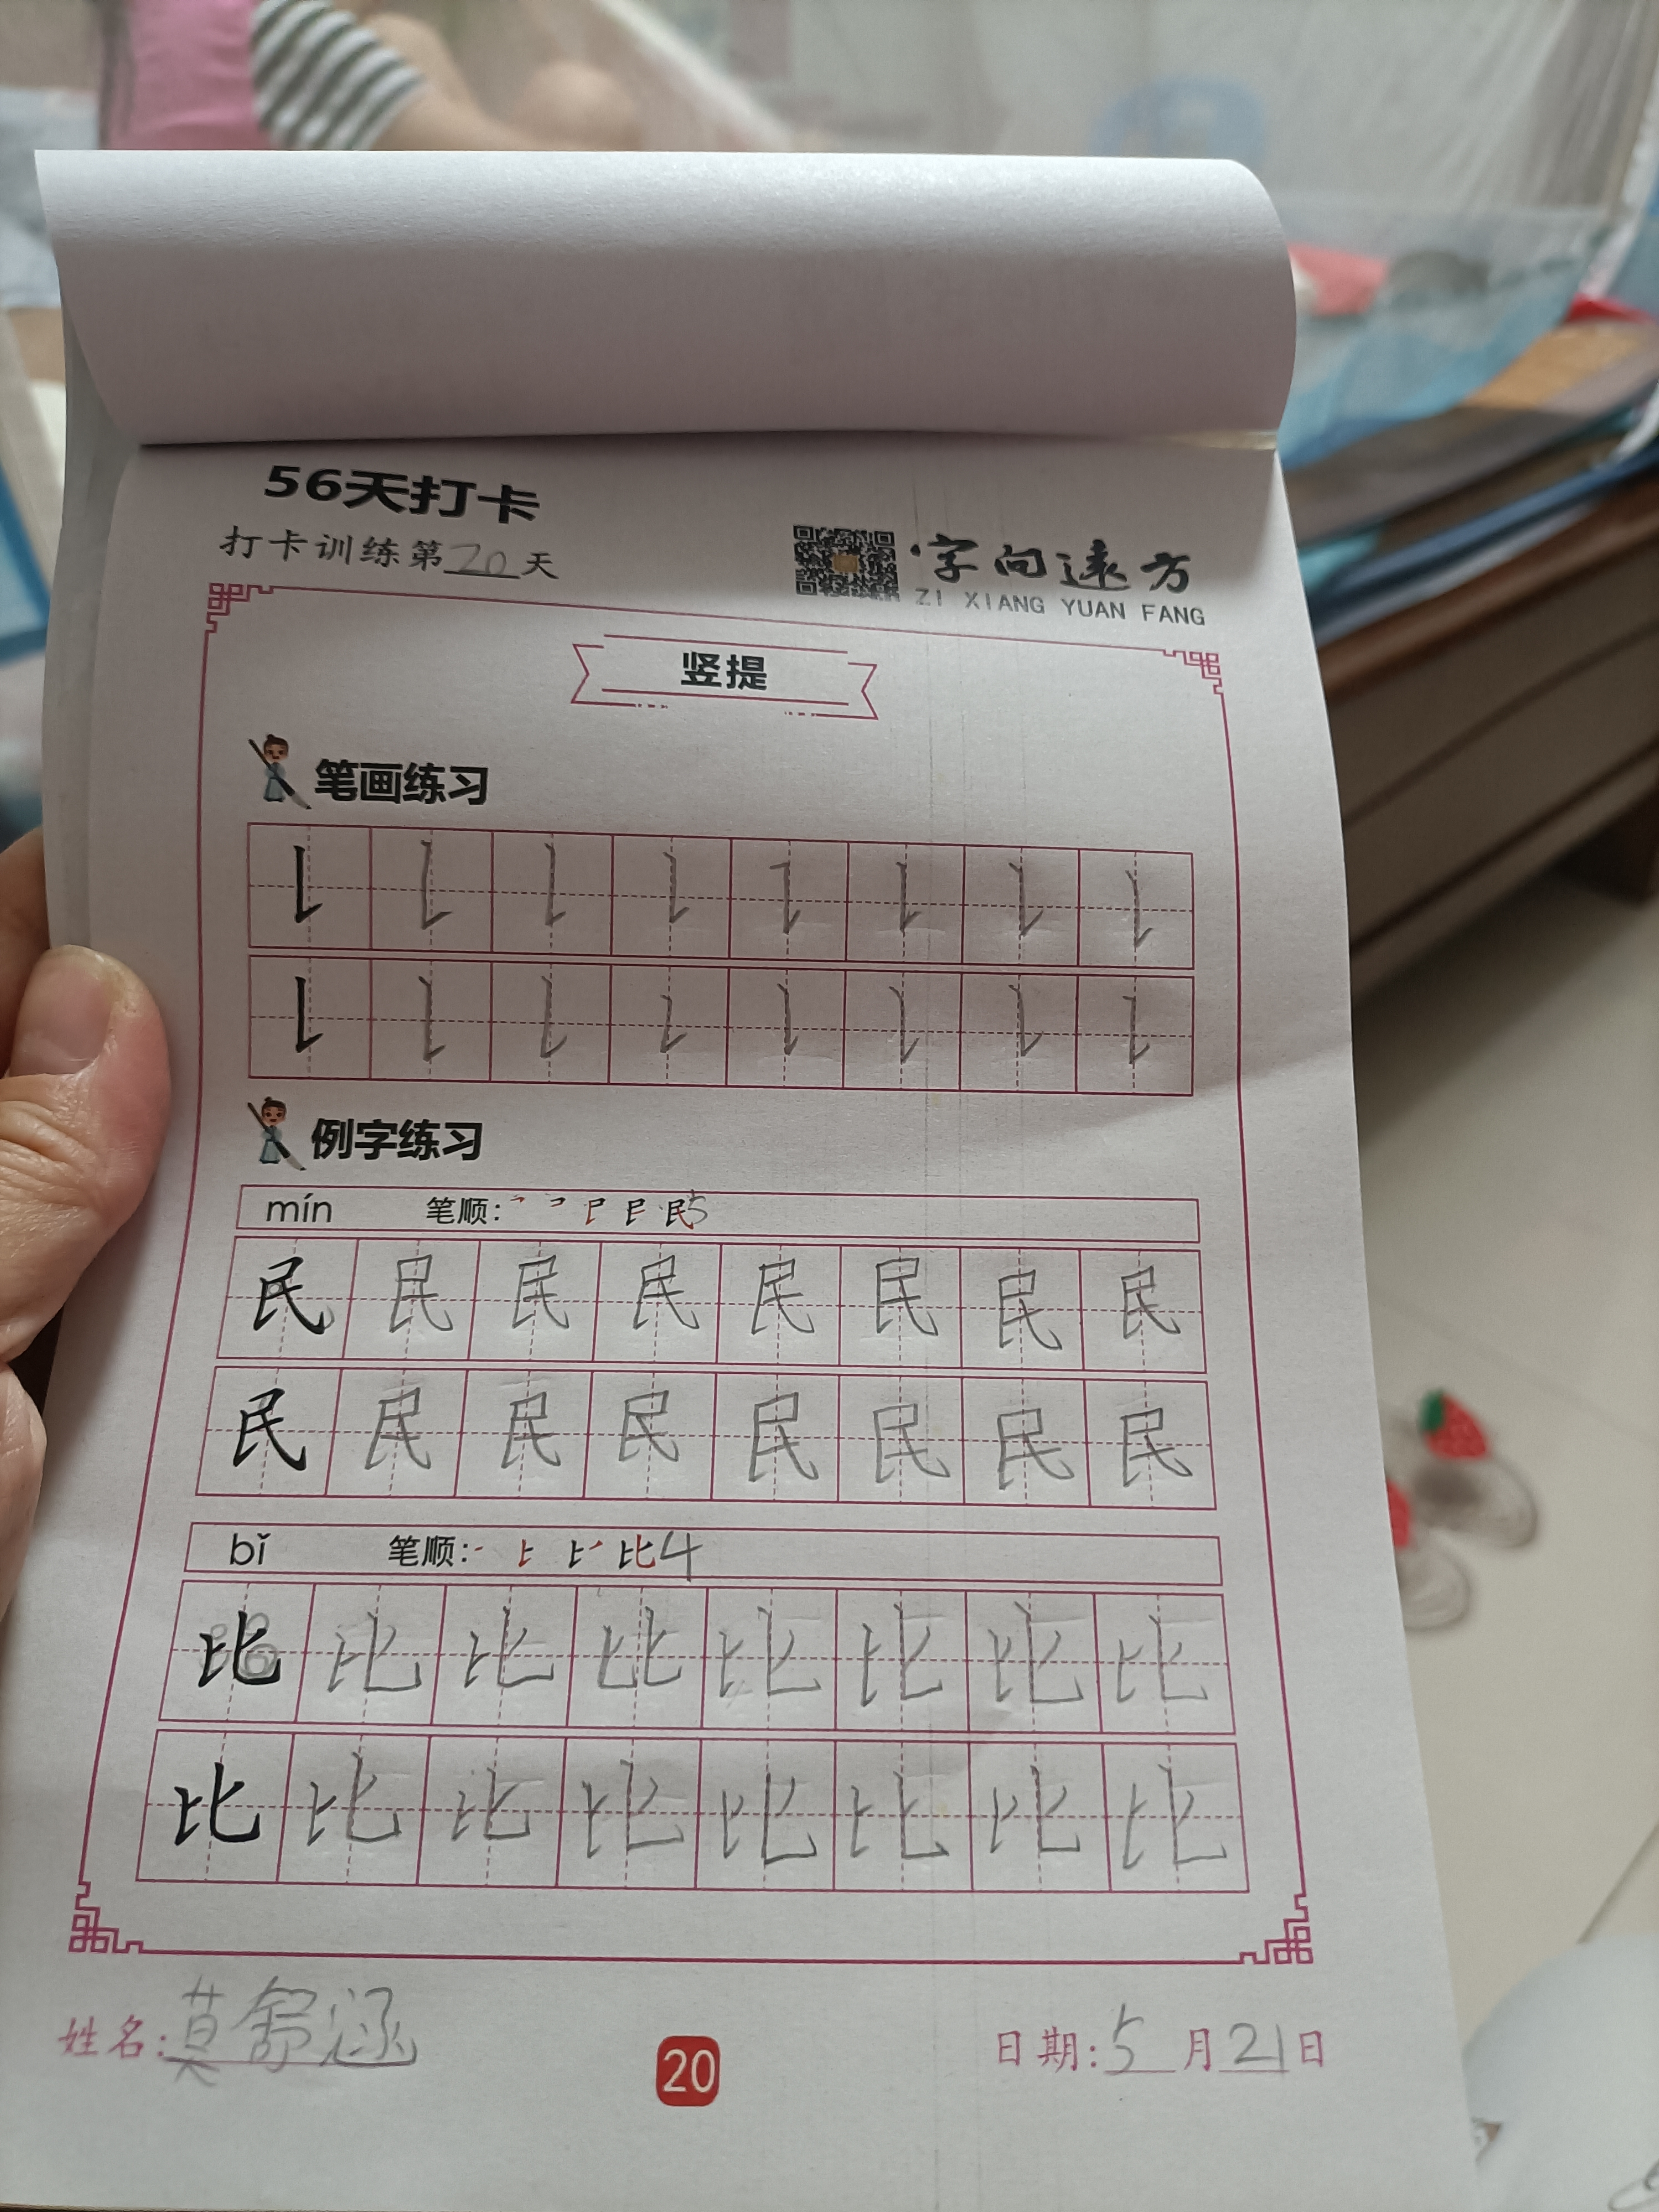 56天打卡
打卡训练第20天
字向远方
ZI XIANG YUAN FANG
竖提
笔画练习
例字练习
mín 笔顺: 民5
民 民 民 民 民 民 民 民
民 民 民 民 民 民 民 民
bǐ 笔顺: 比4
比 比 比 比 比 比 比 比
比 比 比 比 比 比 比 比
姓名:莫舒涵
20
日期:5月21日